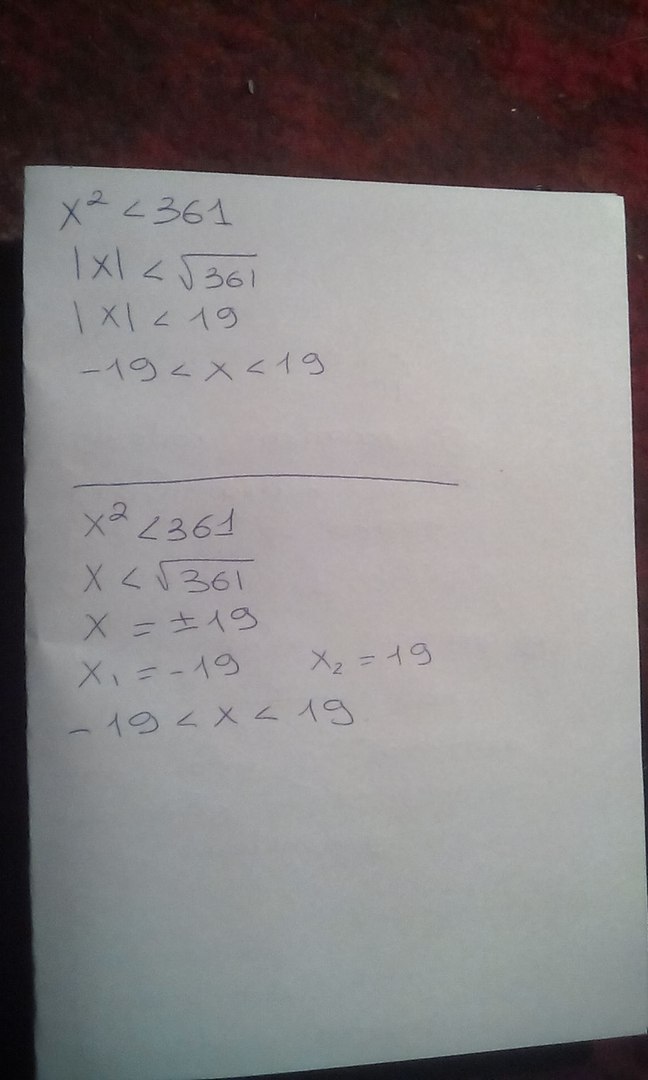 x² < 361
|x| < √361
|x| < 19
-19 < x < 19
x² < 361
x < √361
x = ±19
x₁ = -19 x₂ = 19
-19 < x < 19